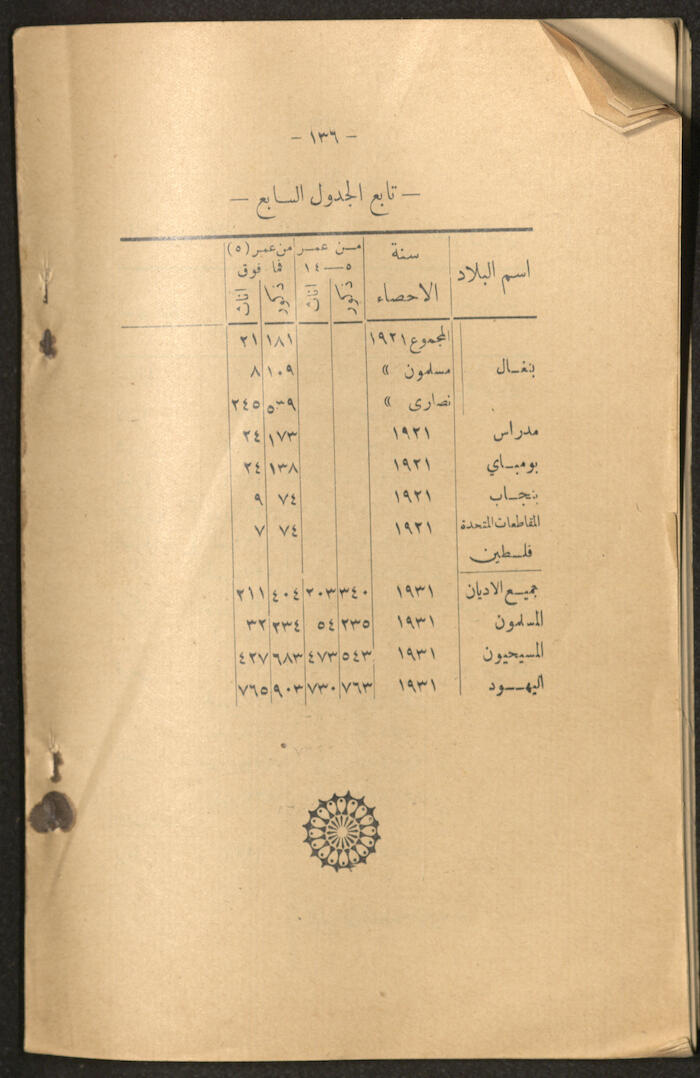 - ١٣٦ -
— تابع الجدول السابع —
اسم البلاد سنة الاحصاء من عمر ٥—١٤ من عمر (٥) فما فوق
ذكور اناث ذكور اناث
بنغال المجموع ١٩٢١ ١٨١ ٢١
مسلمون » ١٠٩ ٨
نصارى » ٥٣٩ ٢٤٥
مدراس ١٩٢١ ١٧٣ ٢٤
بومباي ١٩٢١ ١٣٨ ٢٤
بنجاب ١٩٢١ ٧٤ ٩
المقاطعات المتحدة ١٩٢١ ٧٤ ٧
فلسطين
جميع الاديان ١٩٣١ ٣٤٠ ٢٠٣ ٤٠٤ ٢١١
المسلمون ١٩٣١ ٢٣٥ ٥٤ ٢٣٤ ٣٢
المسيحيون ١٩٣١ ٥٤٣ ٤٧٣ ٦٨٣ ٤٢٧
اليهود ١٩٣١ ٧٦٣ ٧٣٠ ٩٠٣ ٧٦٥